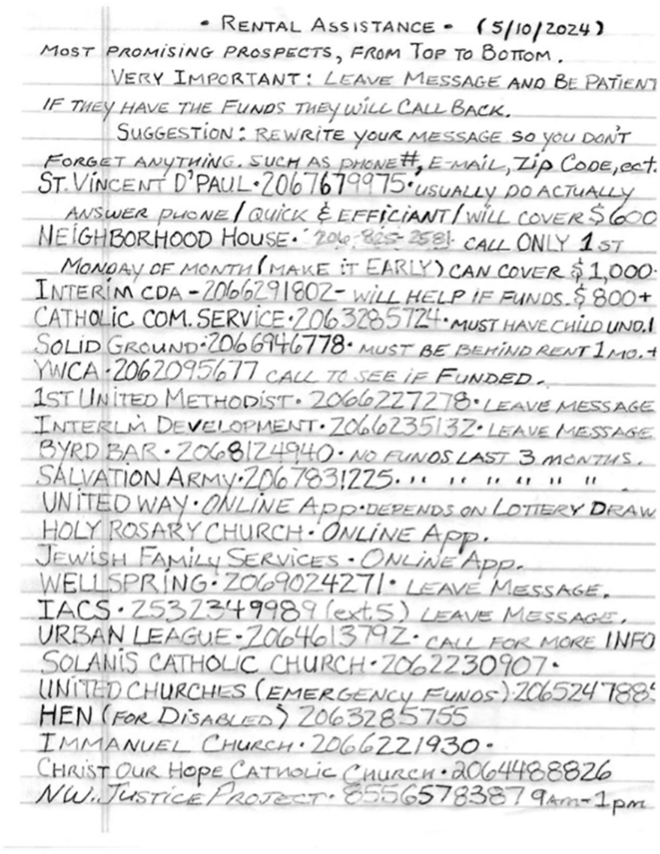 • RENTAL ASSISTANCE • (5/10/2024)
MOST PROMISING PROSPECTS, FROM TOP TO BOTTOM.
VERY IMPORTANT: LEAVE MESSAGE AND BE PATIENT
IF THEY HAVE THE FUNDS THEY WILL CALL BACK.
SUGGESTION: REWRITE YOUR MESSAGE SO YOU DON'T
FORGET ANYTHING. SUCH AS PHONE#, E-MAIL, ZIP CODE, ect.
ST. VINCENT D'PAUL • 2067679975 • USUALLY DO ACTUALLY
ANSWER PHONE / QUICK & EFFICIANT / WILL COVER $600
NEIGHBORHOOD HOUSE • 206-825-2581 CALL ONLY 1ST
MONDAY OF MONTH (MAKE IT EARLY) CAN COVER $1,000
INTERIM CDA - 2066291802 - WILL HELP IF FUNDS. $800+
CATHOLIC COM. SERVICE • 2063285724 • MUST HAVE CHILD UND.1
SOLID GROUND • 2066946778 • MUST BE BEHIND RENT 1 MO. +
YWCA • 2062095677 CALL TO SEE IF FUNDED.
1ST UNITED METHODIST • 2066227278 • LEAVE MESSAGE
INTERIM DEVELOPMENT • 2066235132 • LEAVE MESSAGE
BYRD BAR • 2068124940 • NO FUNDS LAST 3 MONTHS.
SALVATION ARMY • 2067831225 • " " " " " "
UNITED WAY • ONLINE APP • DEPENDS ON LOTTERY DRAW
HOLY ROSARY CHURCH • ONLINE APP.
JEWISH FAMILY SERVICES • ONLINE APP.
WELLSPRING • 2069024271 • LEAVE MESSAGE.
IACS • 2532349989 (ext.5) LEAVE MESSAGE.
URBAN LEAGUE • 2064613792 • CALL FOR MORE INFO
SOLANIS CATHOLIC CHURCH • 2062230907 •
UNITED CHURCHES (EMERGENCY FUNDS) 2065247885
HEN (FOR DISABLED) 2063285755
IMMANUEL CHURCH • 2066221930 •
CHRIST OUR HOPE CATHOLIC CHURCH • 2064488826
NW. JUSTICE PROJECT • 8556578387 9AM-1pm